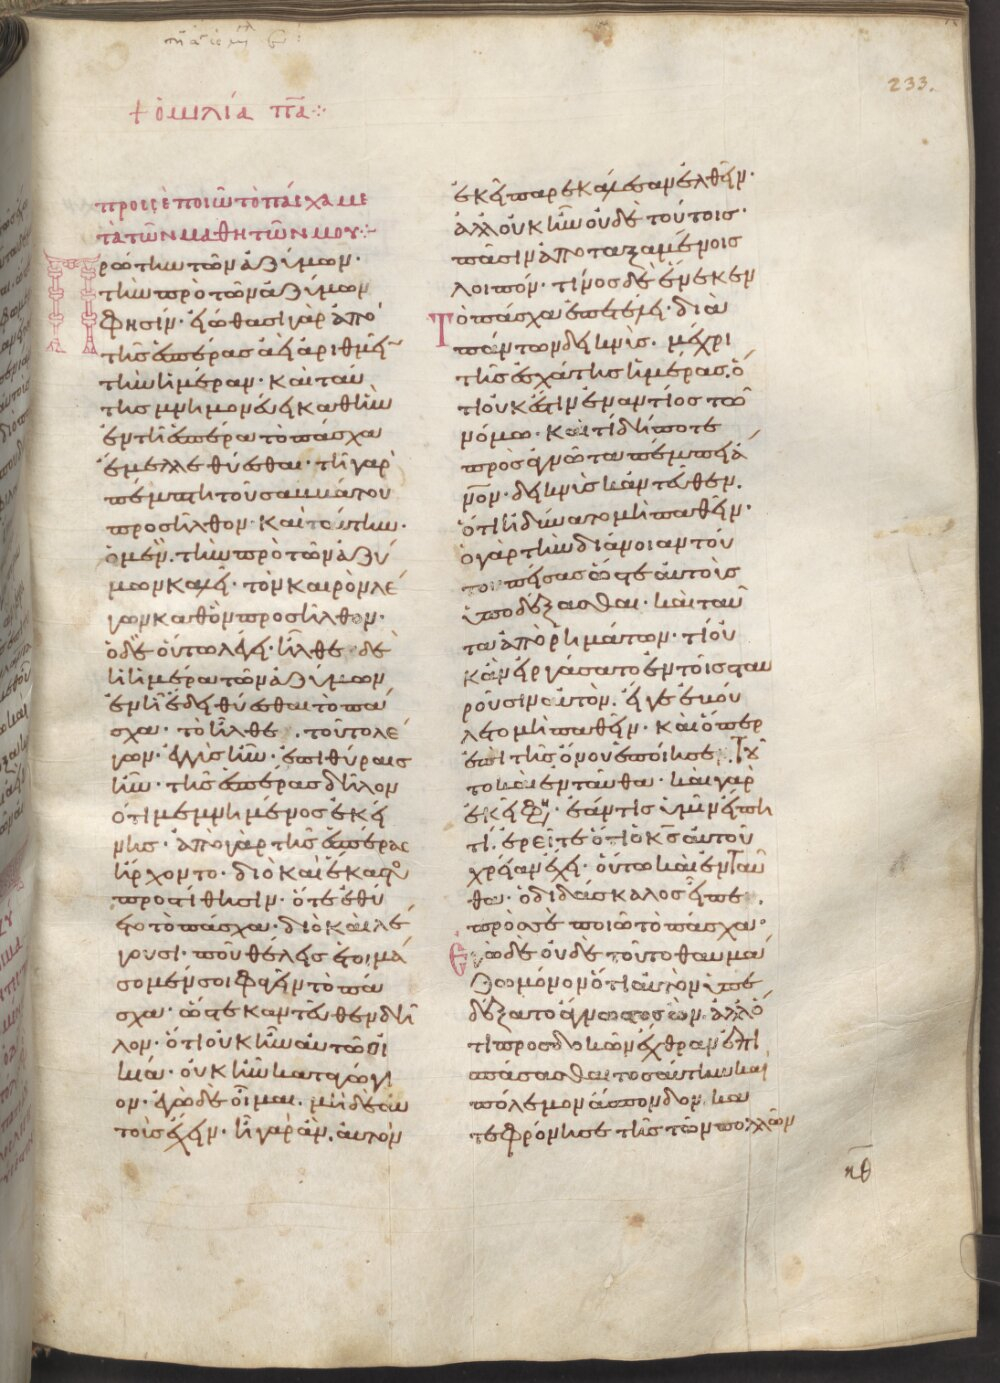 233.
+ ὁμιλία πᾱ
πρὸς σὲ ποιῶ τὸ πάσχα με
τὰ τῶν μαθητῶν μου
Πρώτην τῶν ἀζύμων·
τὴν πρὸ τῶν ἀζύμων
φησίν· εἰώθασι γὰρ ἀπὸ
τῆς ἑσπέρας ἀεὶ ἀριθμεῖ
τὴν ἡμέραν· καὶ ταύ
της μνημονεύει καθ' ἣν
ἐν τῆ ἑσπέρα τὸ πάσχα
ἔμελλε θύεσθαι· τῆ γὰρ
πέμπτη τοῦ σαββάτου
προσῆλθον· καὶ ταύτην·
ὁ μὲν. τὴν πρὸ τῶν ἀζύ
μων καλεῖ· τὸν καιρὸν λέ
γων καθ' ὃν προσῆλθον·
ὁ δὲ οὕτω λέγει· ἦλθε δὲ
ἡ ἡμέρα τῶν ἀζύμων
ἐν ῆ ἔδει θύεσθαι τὸ πά
σχα· τὸ ἦλθε. τοῦτο λέ
γων· ἐγγὺς ἦν· ἐπὶ θύραις
ἦν· τῆς ἑσπέρας δῆλον
ὅτι μεμνημένος ἐκεί
νης· ἀπὸ γὰρ τῆς ἑσπέρας
ἤρχοντο· διὸ καὶ ἕκαστος
προστίθησιν· ὅτε ἐθύ
ετο τὸ πάσχα· διὸ καὶ λέ
γουσι· ποῦ θέλεις ἑτοιμά
σομέν σοι φαγεῖν τὸ πάσ
χα· ὥστε κἀντεῦθεν δῆ
λον· ὅτι οὐκ ἦν αὐτῶ οἰ
κία· οὐκ ἦν καταγώγι
ον· ἐγὼ δὲ οἶμαι. μηδὲ αὐ
τοὺς ἔχειν· ἦ γὰρ ἂν. αὐτὸν
ἐκεῖ παρεκάλεσαν ἐλθεῖν·
ἀλλ' οὐκ ἦν οὐδὲ τούτοις·
πᾶσιν ἀποταξαμένοις
λοιπόν· τίνος δὲ ἕνεκεν
Τὸ πάσχα ἐπετέλει· διὰ
πάντων δεικνὺς. μέχρι
τῆς ἐσχάτης ἡμέρας. ὅ
τι οὐκ ἔστιν ἐναντίος τῶ
νόμω· καὶ τί δήποτε
πρὸς ἀγνῶτα πέμπει ἄ
νον· δεικνὺς κἀντεῦθεν.
ὅτι ἠδύνατο μὴ παθεῖν·
ὁ γὰρ τὴν διάνοιαν τού
του πείσας ὥστε αὐτοὺς
ὑποδέξασθαι· καὶ ταῦ
τα ἀπὸ ῥημάτων· τί οὐ
κ ἂν εἰργάσατο ἐν τοῖς σταυ
ροῦσιν αὐτὸν. εἴγε ἐβού
λετο μὴ παθεῖν· καὶ ὅπερ
ἐπὶ τῆς ὄνου ἐποίησε. τοῦ
το καὶ ἐνταῦθα· καὶ γὰρ
ἐκεῖ φη· ἐάν τις ὑμῖν εἴπη
τι. ἐρεῖτε ὅτι ὁ κς αὐτοῦ
χρείαν ἔχει· οὕτω καὶ ἐνταῦ
θα· ὁ διδάσκαλος εἶπε.
πρὸς σὲ ποιῶ τὸ πάσχα·
Ἐγὼ δὲ οὐδὲ τοῦτο θαυμά
ζω μόνον ὅτι αὐτὸν ὑπε
δέξατο ἀγνὼς ὤν. ἀλλ' ὅ
τι προσδοκῶν ἔχθραν ἐπι
σπάσασθαι τοσαύτην καὶ
πόλεμον ἄσπονδον. κα
τεφρόνησε τῆς τῶν πολλῶν
κθ